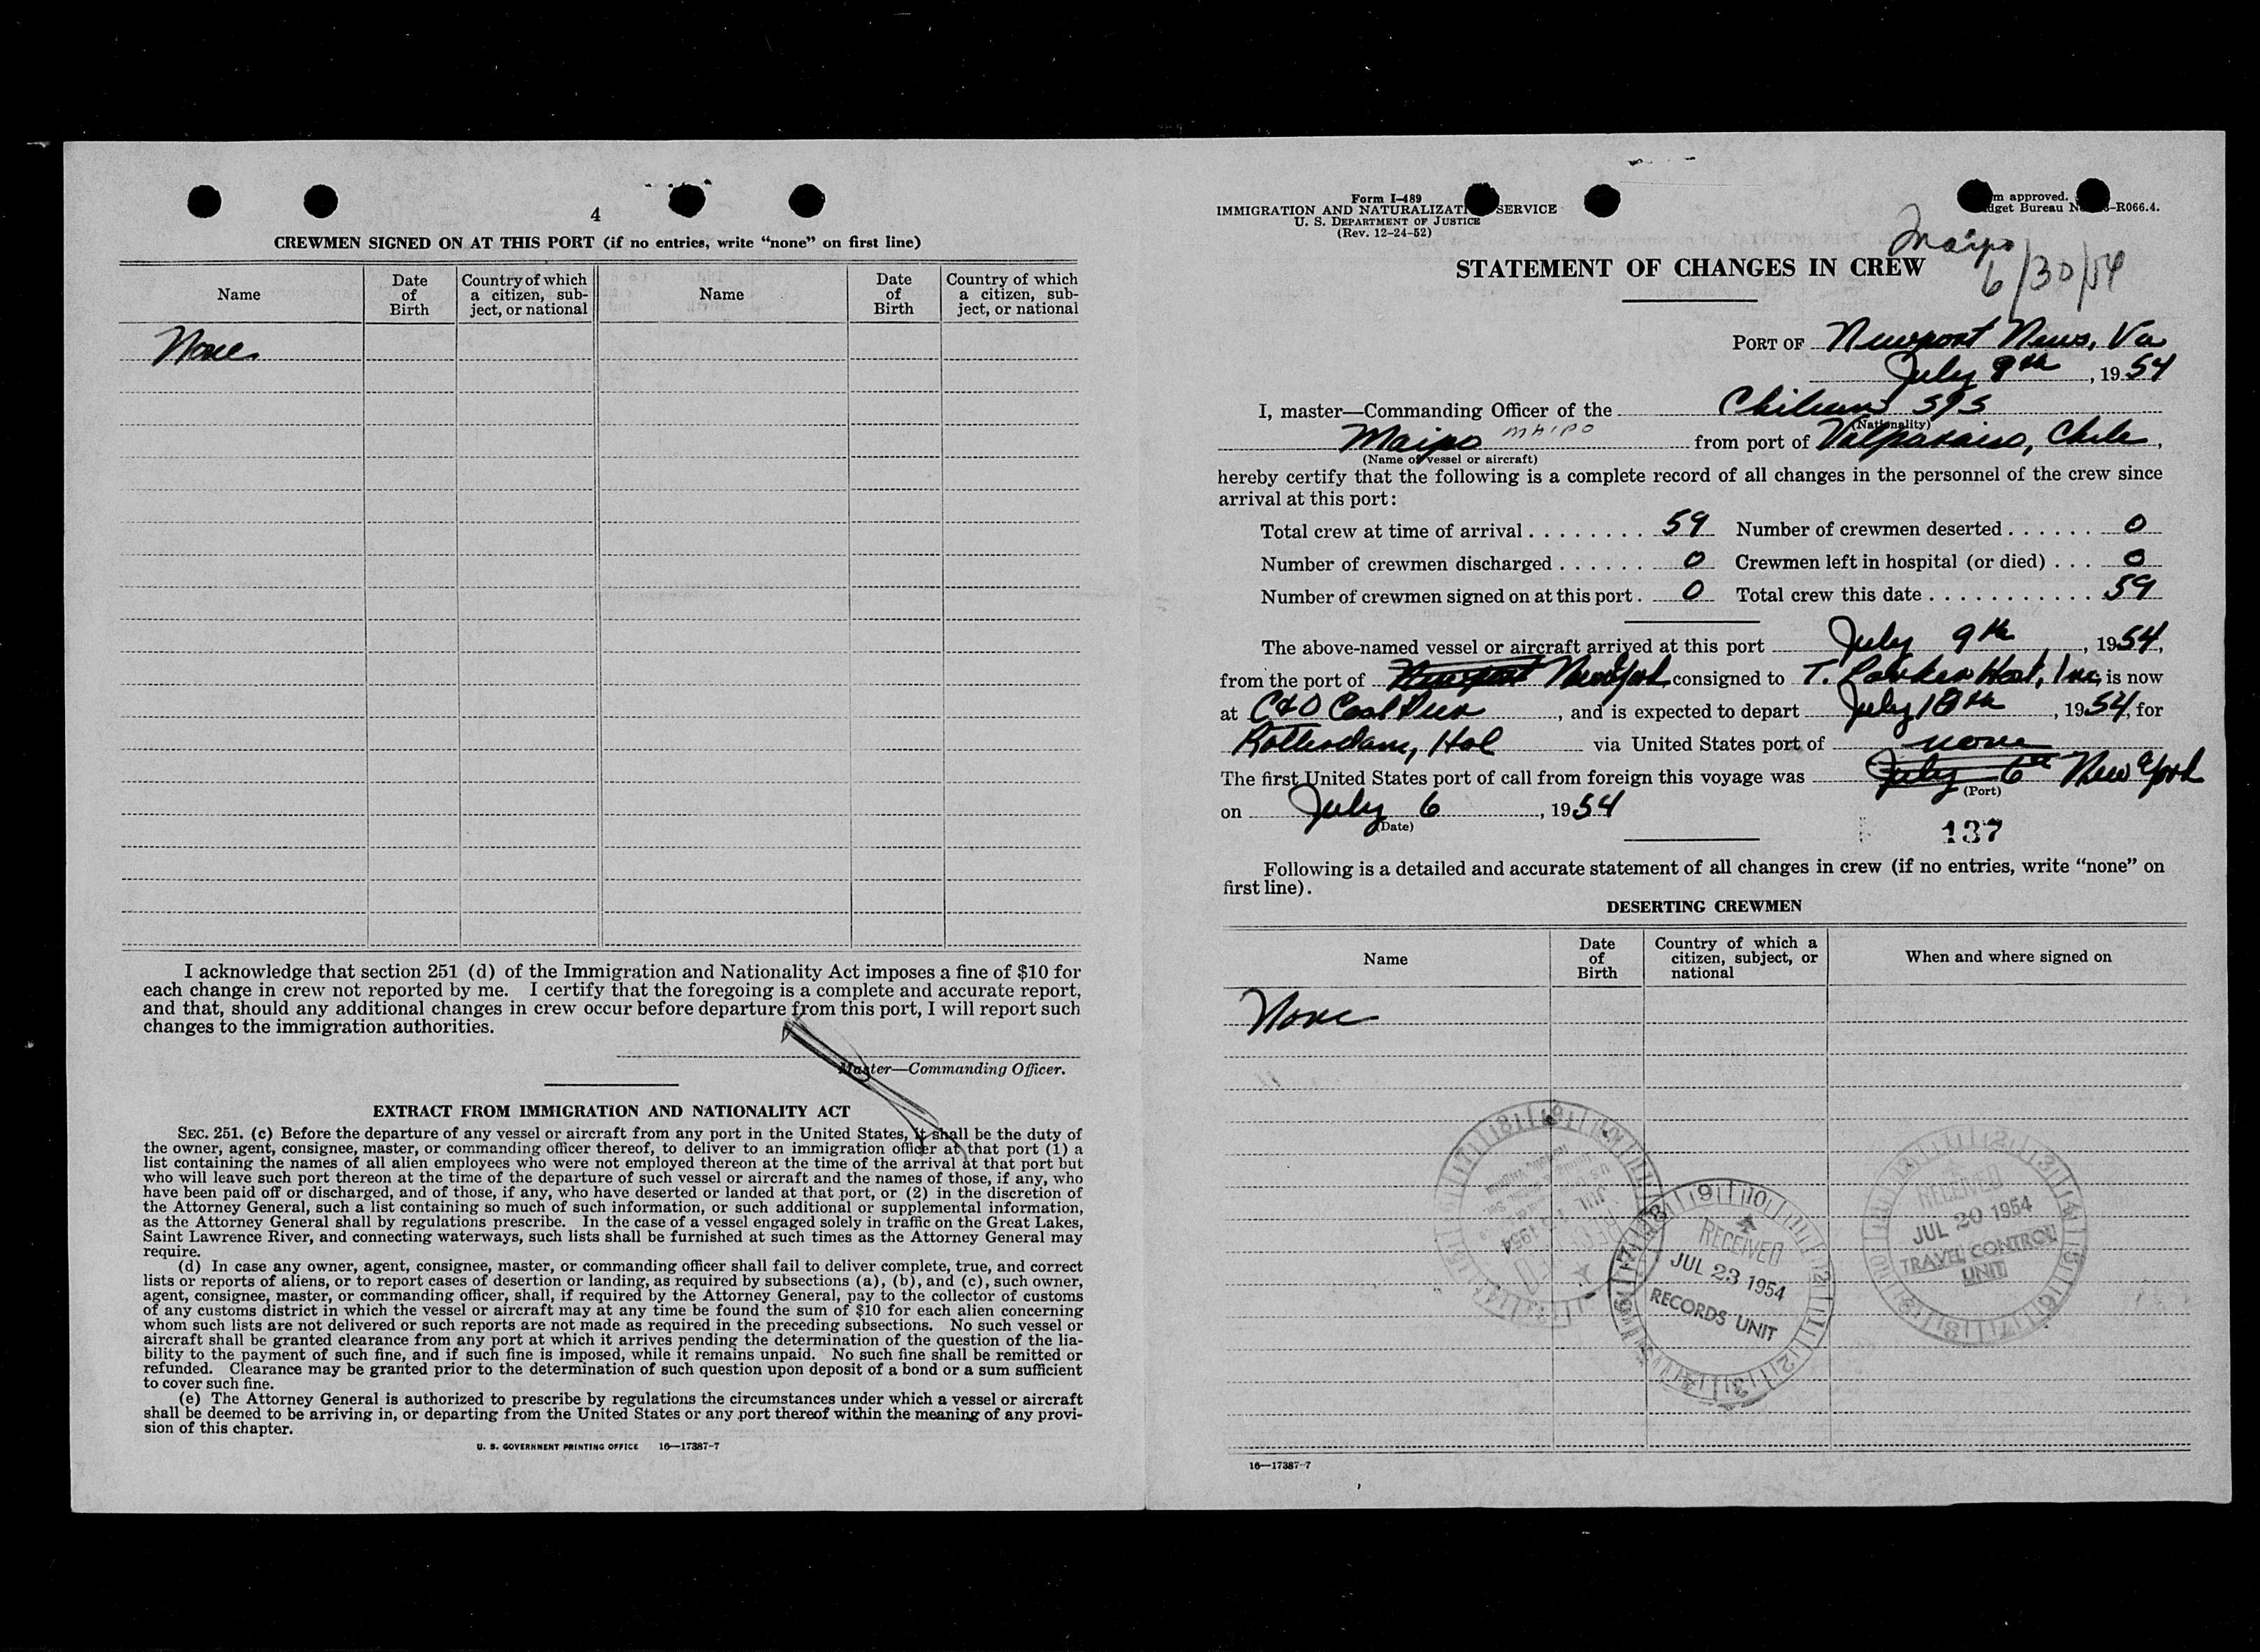 4
CREWMEN SIGNED ON AT THIS PORT (if no entries, write “none” on first line)
Name
Date of Birth
Country of which a citizen, subject, or national
Name
Date of Birth
Country of which a citizen, subject, or national
None
I acknowledge that section 251 (d) of the Immigration and Nationality Act imposes a fine of $10 for
each change in crew not reported by me. I certify that the foregoing is a complete and accurate report,
and that, should any additional changes in crew occur before departure from this port, I will report such
changes to the immigration authorities.
Master—Commanding Officer.
EXTRACT FROM IMMIGRATION AND NATIONALITY ACT
SEC. 251. (c) Before the departure of any vessel or aircraft from any port in the United States, it shall be the duty of
the owner, agent, consignee, master, or commanding officer thereof, to deliver to an immigration officer at that port (1) a
list containing the names of all alien employees who were not employed thereon at the time of the arrival at that port but
who will leave such port thereon at the time of the departure of such vessel or aircraft and the names of those, if any, who
have been paid off or discharged, and of those, if any, who have deserted or landed at that port, or (2) in the discretion of
the Attorney General, such a list containing so much of such information, or such additional or supplemental information,
as the Attorney General shall by regulations prescribe. In the case of a vessel engaged solely in traffic on the Great Lakes,
Saint Lawrence River, and connecting waterways, such lists shall be furnished at such times as the Attorney General may
require.
(d) In case any owner, agent, consignee, master, or commanding officer shall fail to deliver complete, true, and correct
lists or reports of aliens, or to report cases of desertion or landing, as required by subsections (a), (b), and (c), such owner,
agent, consignee, master, or commanding officer, shall, if required by the Attorney General, pay to the collector of customs
of any customs district in which the vessel or aircraft may at any time be found the sum of $10 for each alien concerning
whom such lists are not delivered or such reports are not made as required in the preceding subsections. No such vessel or
aircraft shall be granted clearance from any port at which it arrives pending the determination of the question of the lia-
bility to the payment of such fine, and if such fine is imposed, while it remains unpaid. No such fine shall be remitted or
refunded. Clearance may be granted prior to the determination of such question upon deposit of a bond or a sum sufficient
to cover such fine.
(e) The Attorney General is authorized to prescribe by regulations the circumstances under which a vessel or aircraft
shall be deemed to be arriving in, or departing from the United States or any port thereof within the meaning of any provi-
sion of this chapter.
U. S. GOVERNMENT PRINTING OFFICE 16—17387-7
Form I-489
IMMIGRATION AND NATURALIZATI SERVICE
U. S. DEPARTMENT OF JUSTICE
(Rev. 12-24-52)
m approved.
dget Bureau N -R066.4.
Maipo
6/30/54
STATEMENT OF CHANGES IN CREW
PORT OF Newport News, Va
July 9th, 1954
I, master—Commanding Officer of the Chilean S/S
(Nationality)
Maipo MAIPO from port of Valparaiso, Chile,
(Name of vessel or aircraft)
hereby certify that the following is a complete record of all changes in the personnel of the crew since
arrival at this port:
Total crew at time of arrival . . . . . . . . 59 Number of crewmen deserted . . . . . . 0
Number of crewmen discharged . . . . . . 0 Crewmen left in hospital (or died) . . . 0
Number of crewmen signed on at this port . 0 Total crew this date . . . . . . . . . . . 59
The above-named vessel or aircraft arrived at this port July 9th, 1954,
from the port of Newport New York consigned to T. Parker Host, Inc, is now
at C&O Coal Pier, and is expected to depart July 10th, 1954, for
Rotterdam, Hol via United States port of none
The first United States port of call from foreign this voyage was July 6th New York
(Port)
on July 6, 1954
(Date)
137
Following is a detailed and accurate statement of all changes in crew (if no entries, write “none” on
first line).
DESERTING CREWMEN
Name
Date of Birth
Country of which a citizen, subject, or national
When and where signed on
None
RECEIVED
JUL 23 1954
RECORDS UNIT
RECEIVED
JUL 20 1954
TRAVEL CONTROL
UNIT
16—17387-7